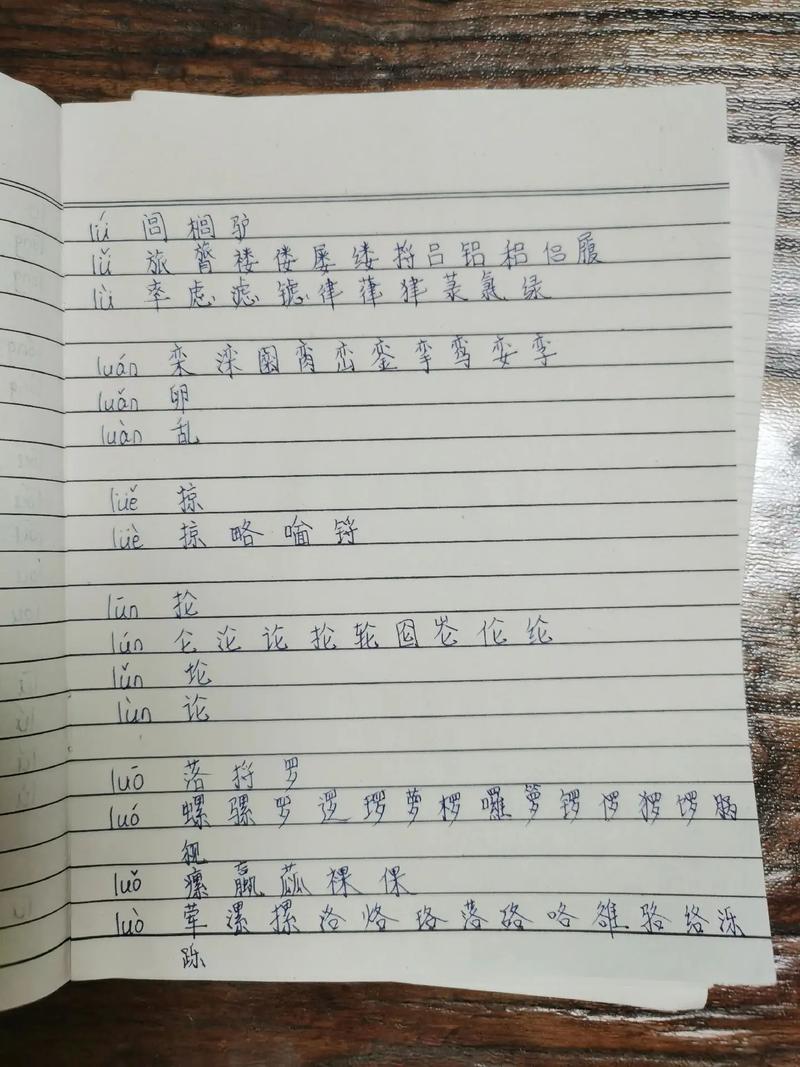 lǘ 闾 榈 驴
lǚ 旅 膂 褛 偻 屡 缕 捋 吕 铝 稆 侣 履
lǜ 率 虑 滤 律 葎 氯 绿
luán 栾 滦 圞 脔 峦 銮 挛 鸾 娈 孪
luǎn 卵
luàn 乱
lüě 掠
lüè 掠 略 锊
lūn 抡
lún 仑 沦 论 抡 轮 囵 伦 纶
lǔn 埨
lùn 论
luō 落 捋 罗
luó 螺 骡 罗 逻 猡 萝 椤 囉 箩 锣 㑩 猡 脶
觎
luǒ 瘰 蠃 蓏 裸 倮
luò 荦 漯 摞 洛 烙 珞 落 硌 咯 雒 骆 络 泺
跞